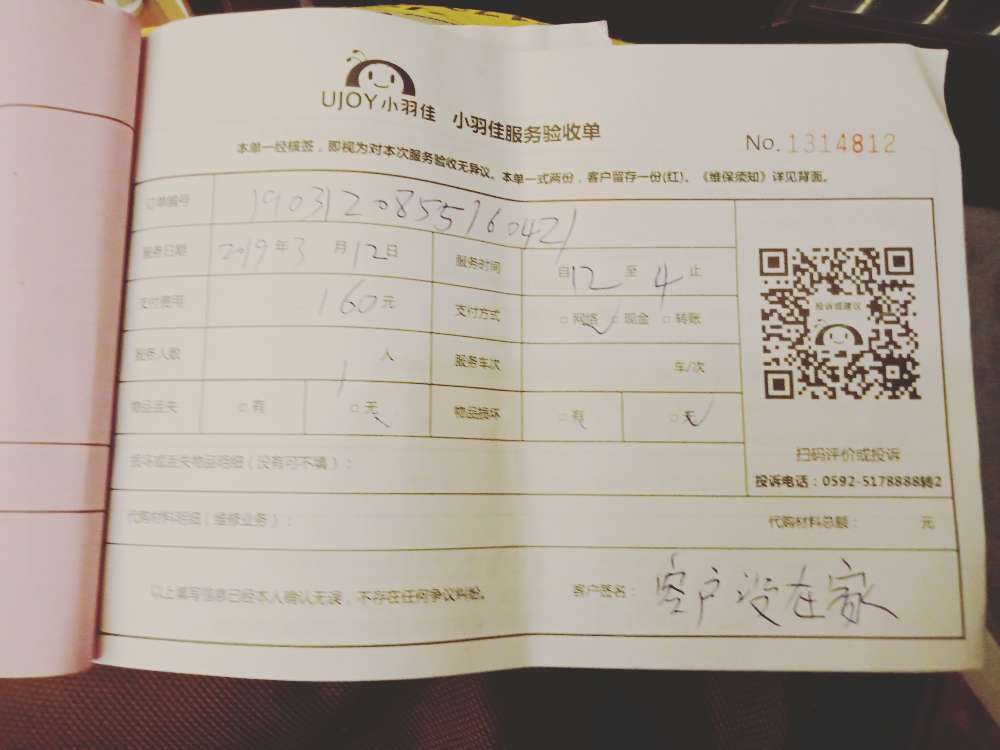 UJOY小羽佳 小羽佳服务验收单
No.1314812
本单一经核签，即视为对本次服务验收无异议。本单一式两份，客户留存一份(红)。《维保须知》详见背面。
订单编号 1903120855160421
服务日期 2019年3月12日 服务时间 自12至4止
支付费用 160元 支付方式 □网络 □现金 □转账
服务人数 1人 服务车次 车/次
物品丢失 □有 □无 物品损坏 □有 □无
损坏或丢失物品明细（没有可不填）：
代购材料明细（维修业务）： 代购材料总额： 元
以上填写信息已经本人确认无误，不存在任何争议纠纷。 客户签名：客户没在家
投诉或建议
扫码评价或投诉
投诉电话：0592-5178888转2